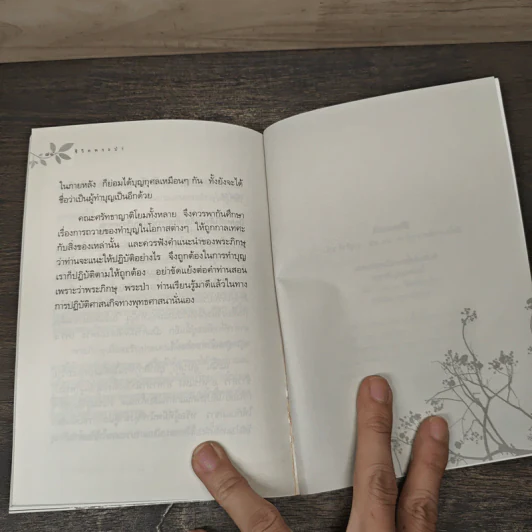 ชีวิตพระป่า
ในภายหลัง ก็ย่อมได้บุญกุศลเหมือนๆ กัน ทั้งยังจะได้
ชื่อว่าเป็นผู้ทำบุญเป็นอีกด้วย
คณะศรัทธาญาติโยมทั้งหลาย จึงควรพากันศึกษา
เรื่องการถวายของทำบุญในโอกาสต่างๆ ให้ถูกกาลเทศะ
กับสิ่งของเหล่านั้น และควรฟังคำแนะนำของพระภิกษุ
ว่าท่านจะแนะให้ปฏิบัติอย่างไร จึงถูกต้องในการทำบุญ
เราก็ปฏิบัติตามให้ถูกต้อง อย่าขัดแย้งต่อคำท่านสอน
เพราะว่าพระภิกษุ พระป่า ท่านเรียนรู้มาดีแล้วในทาง
การปฏิบัติศาสนกิจทางพุทธศาสนานั่นเอง